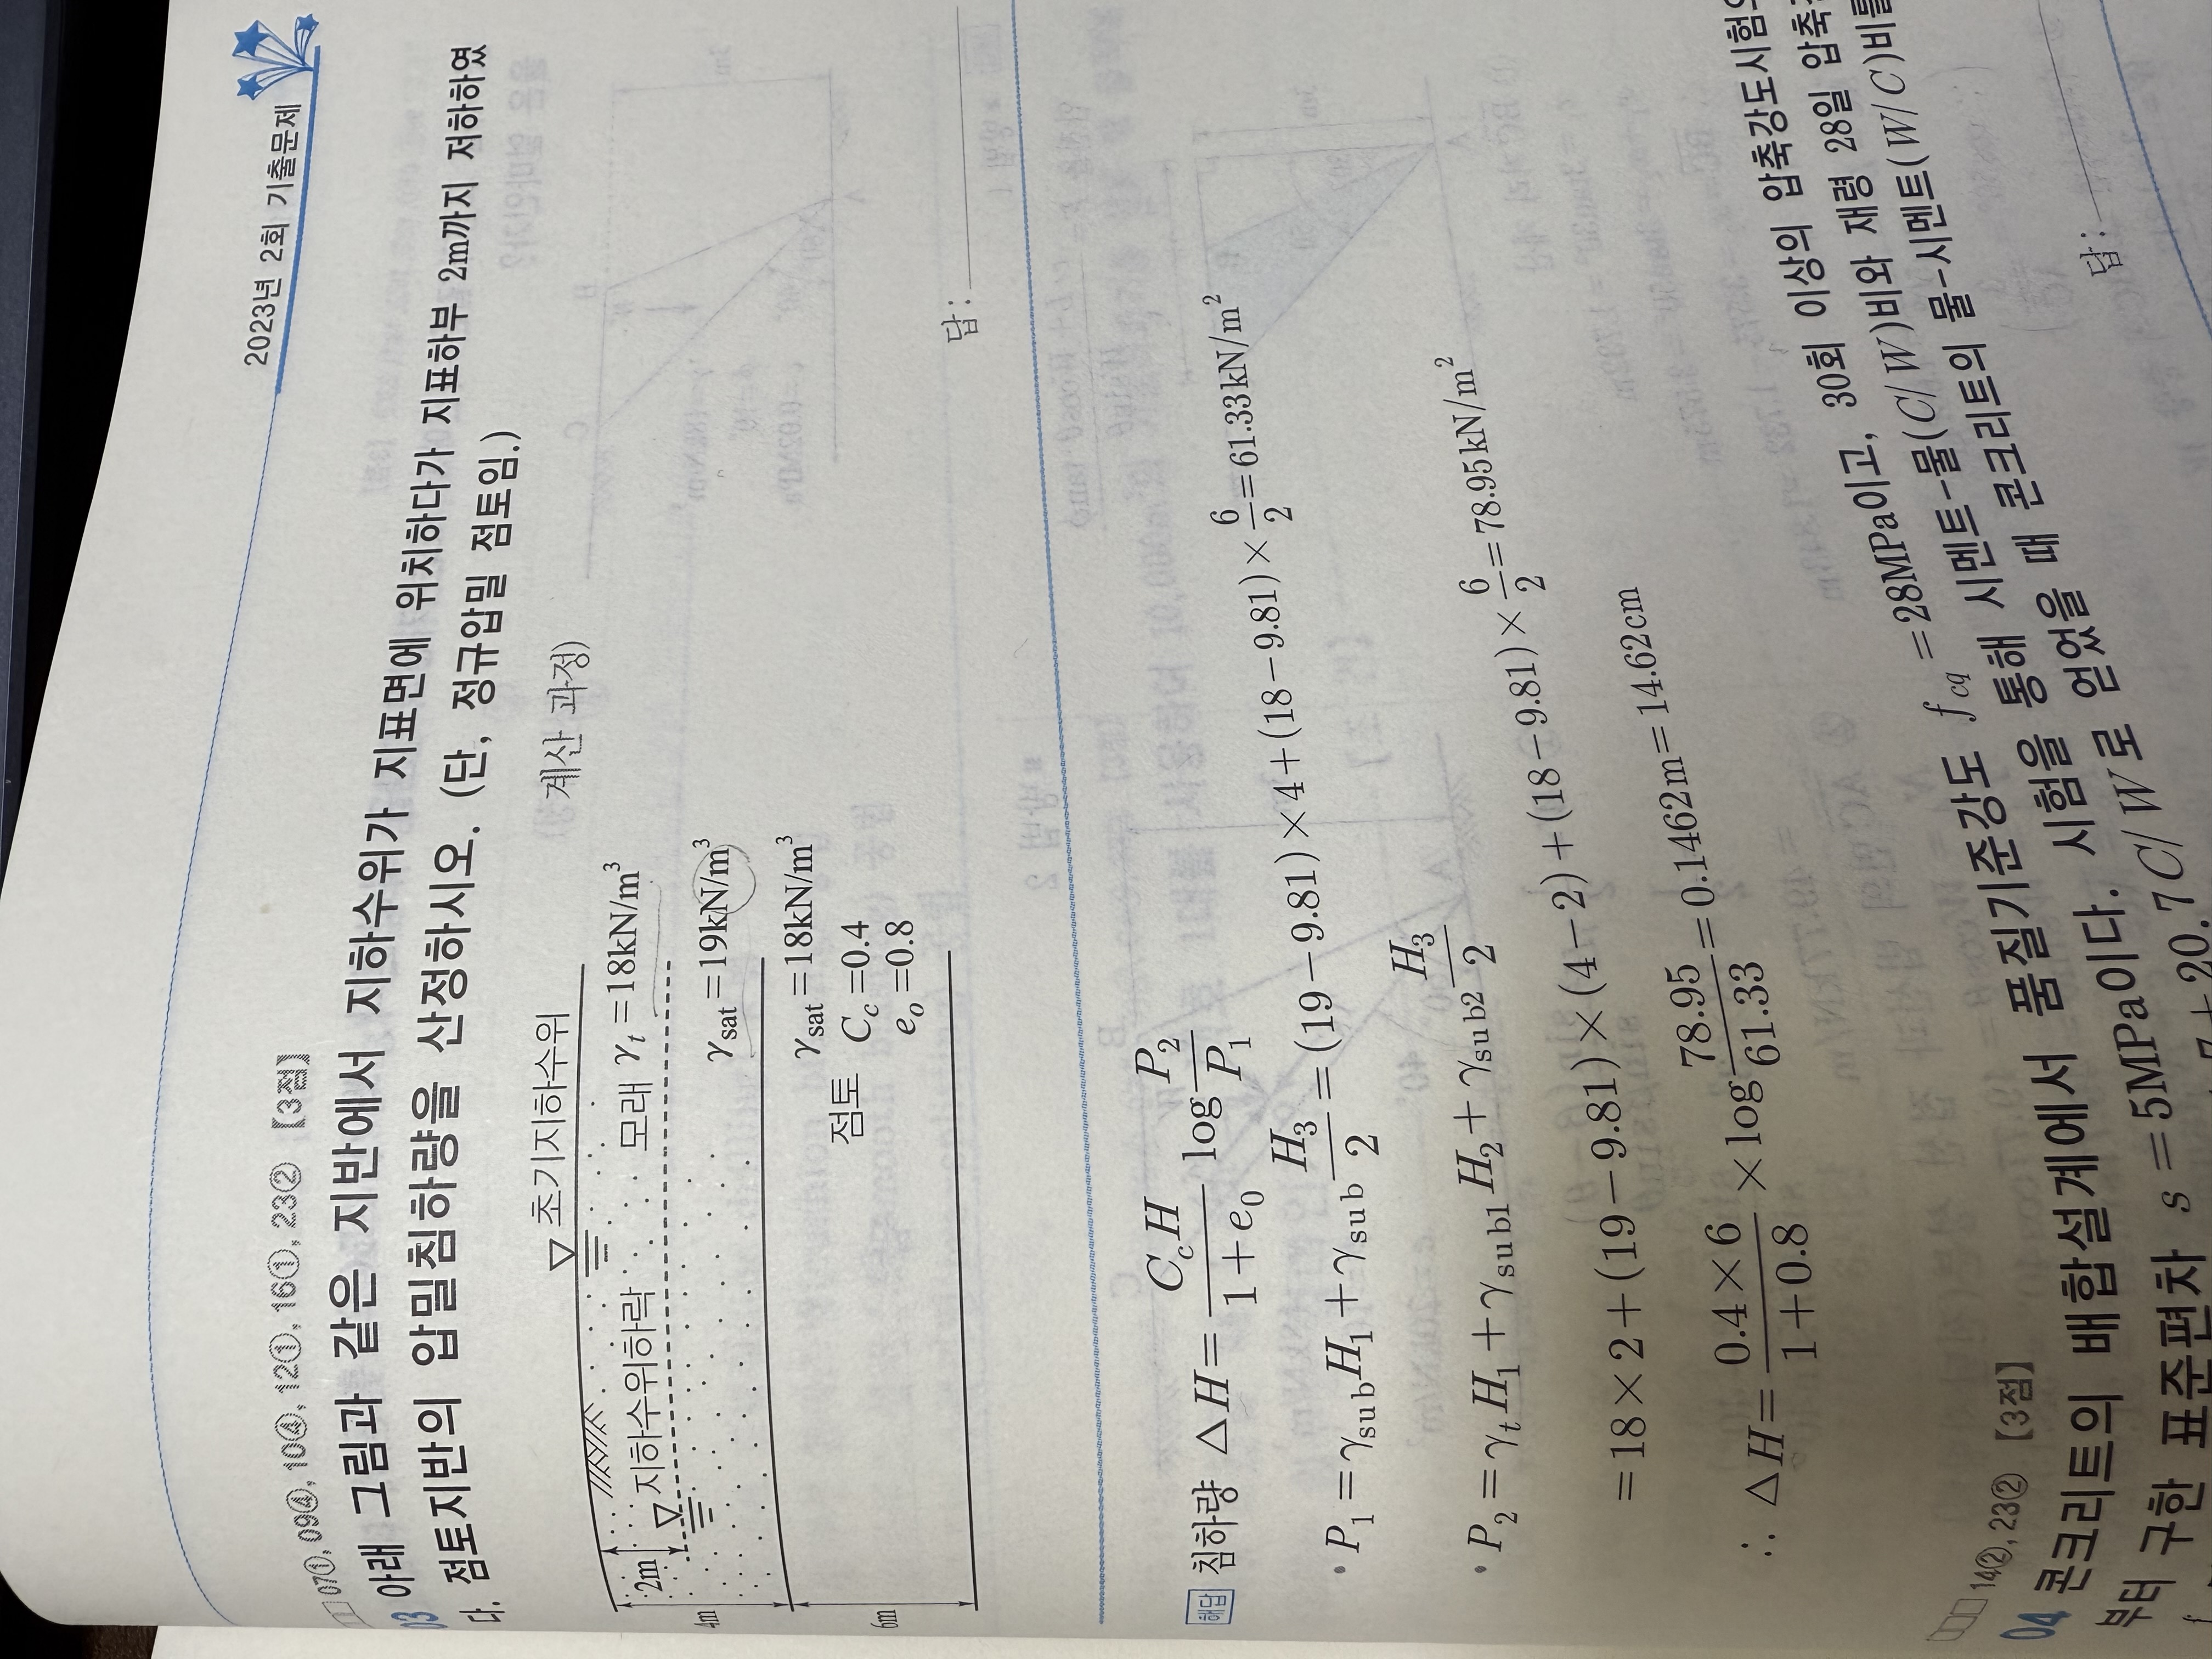 2023년 2회 기출문제
07①, 09④, 10④, 12①, 16①, 23② 【3점】
03 아래 그림과 같은 지반에서 지하수위가 지표면에 위치하다가 지표하부 2m까지 저하하였
다. 점토지반의 압밀침하량을 산정하시오. (단, 정규압밀 점토임.)
(계산 과정)
초기지하수위
2m 지하수위하락 모래 γt = 18kN/m³
4m γsat = 19kN/m³
γsat = 18kN/m³
6m 점토 Cc = 0.4
eo = 0.8
답 :
해답 침하량 ΔH = CcH / (1 + e0) log P2/P1
• P1 = γsub H1 + γsub H3/2 = (19 − 9.81) × 4 + (18 − 9.81) × 6/2 = 61.33kN/m²
• P2 = γt H1 + γsub1 H2 + γsub2 H3/2
= 18 × 2 + (19 − 9.81) × (4 − 2) + (18 − 9.81) × 6/2 = 78.95kN/m²
∴ ΔH = (0.4 × 6) / (1 + 0.8) × log 78.95/61.33 = 0.1462m = 14.62cm
14②, 23② 【3점】
04 콘크리트의 배합설계에서 품질기준강도 fcq = 28MPa이고, 30회 이상의 압축강도시험
부터 구한 표준편차 s = 5MPa이다. 시험을 통해 시멘트-물(C/W)비와 재령 28일 압축
20.7 C/W로 얻었을 때 콘크리트의 물-시멘트(W/C)비를
답 :